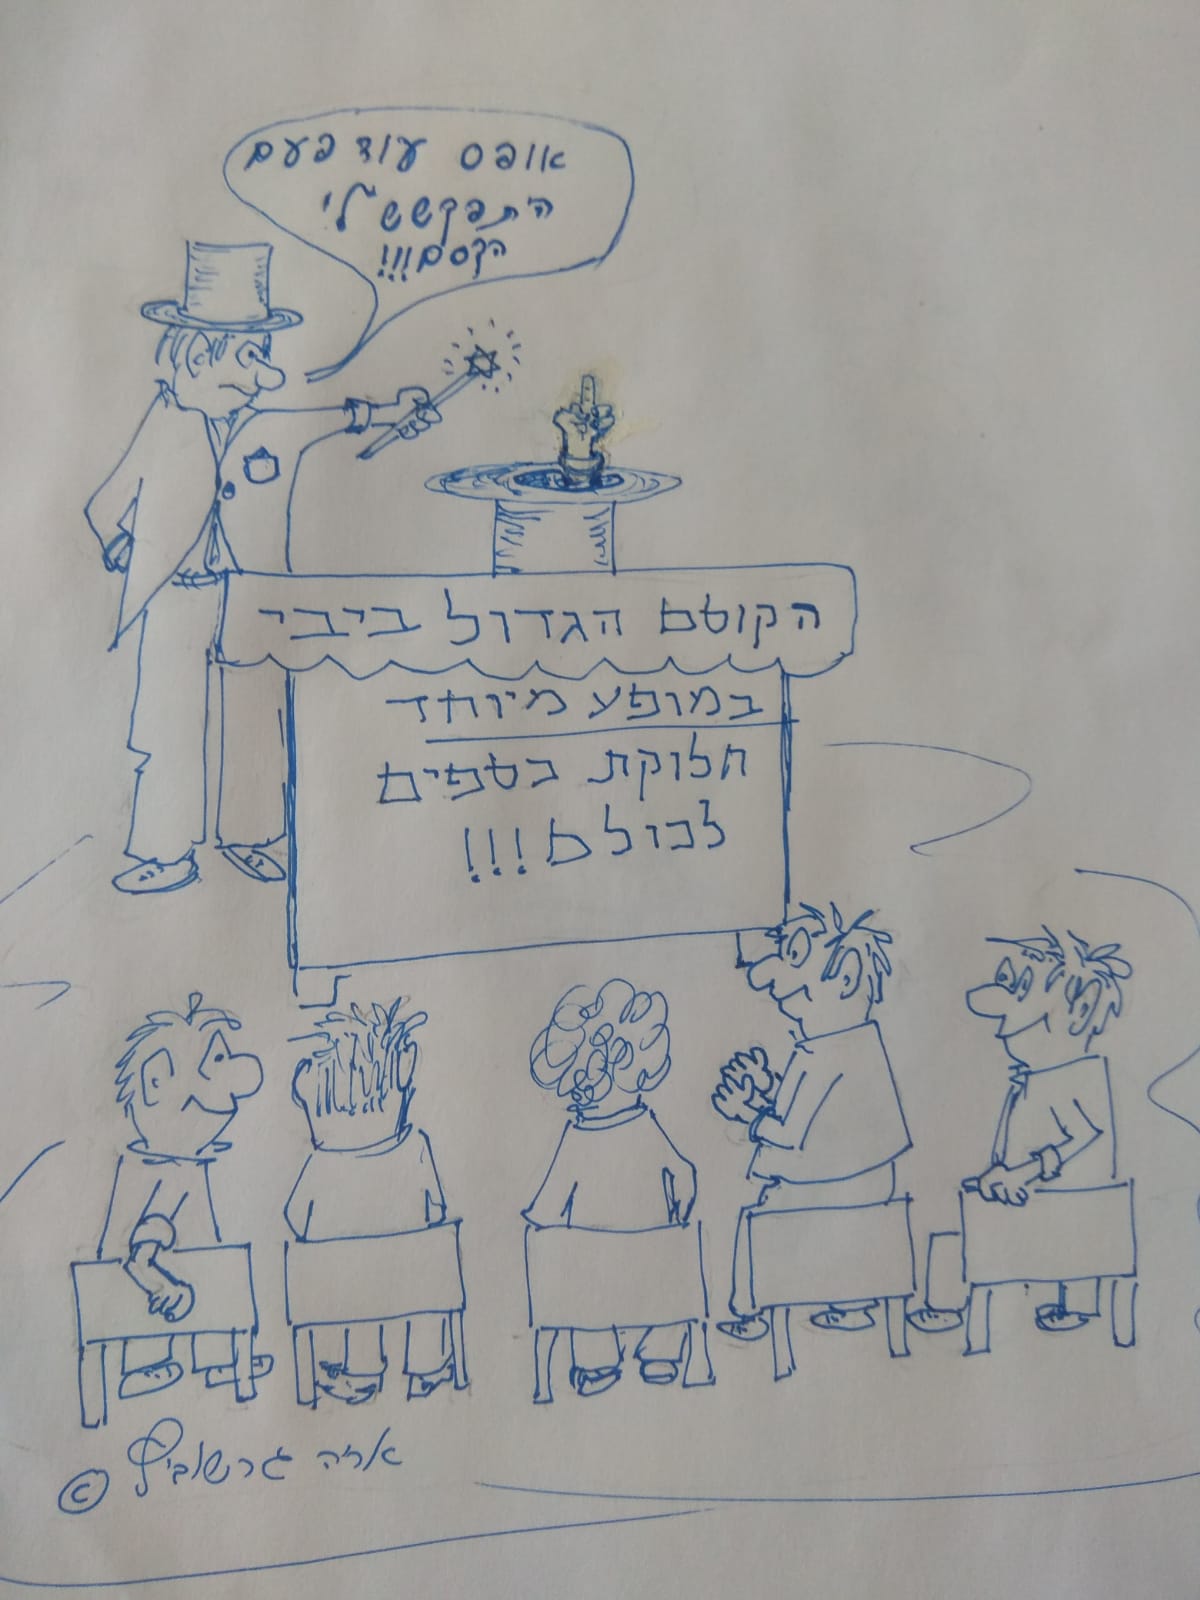 אופס עוד פעם
התפקשש לי
הקסם!!!
הקוסם הגדול ביבי
במופע מיוחד
חלוקת כספים
לכולם!!!
© אריה גרשוביץ